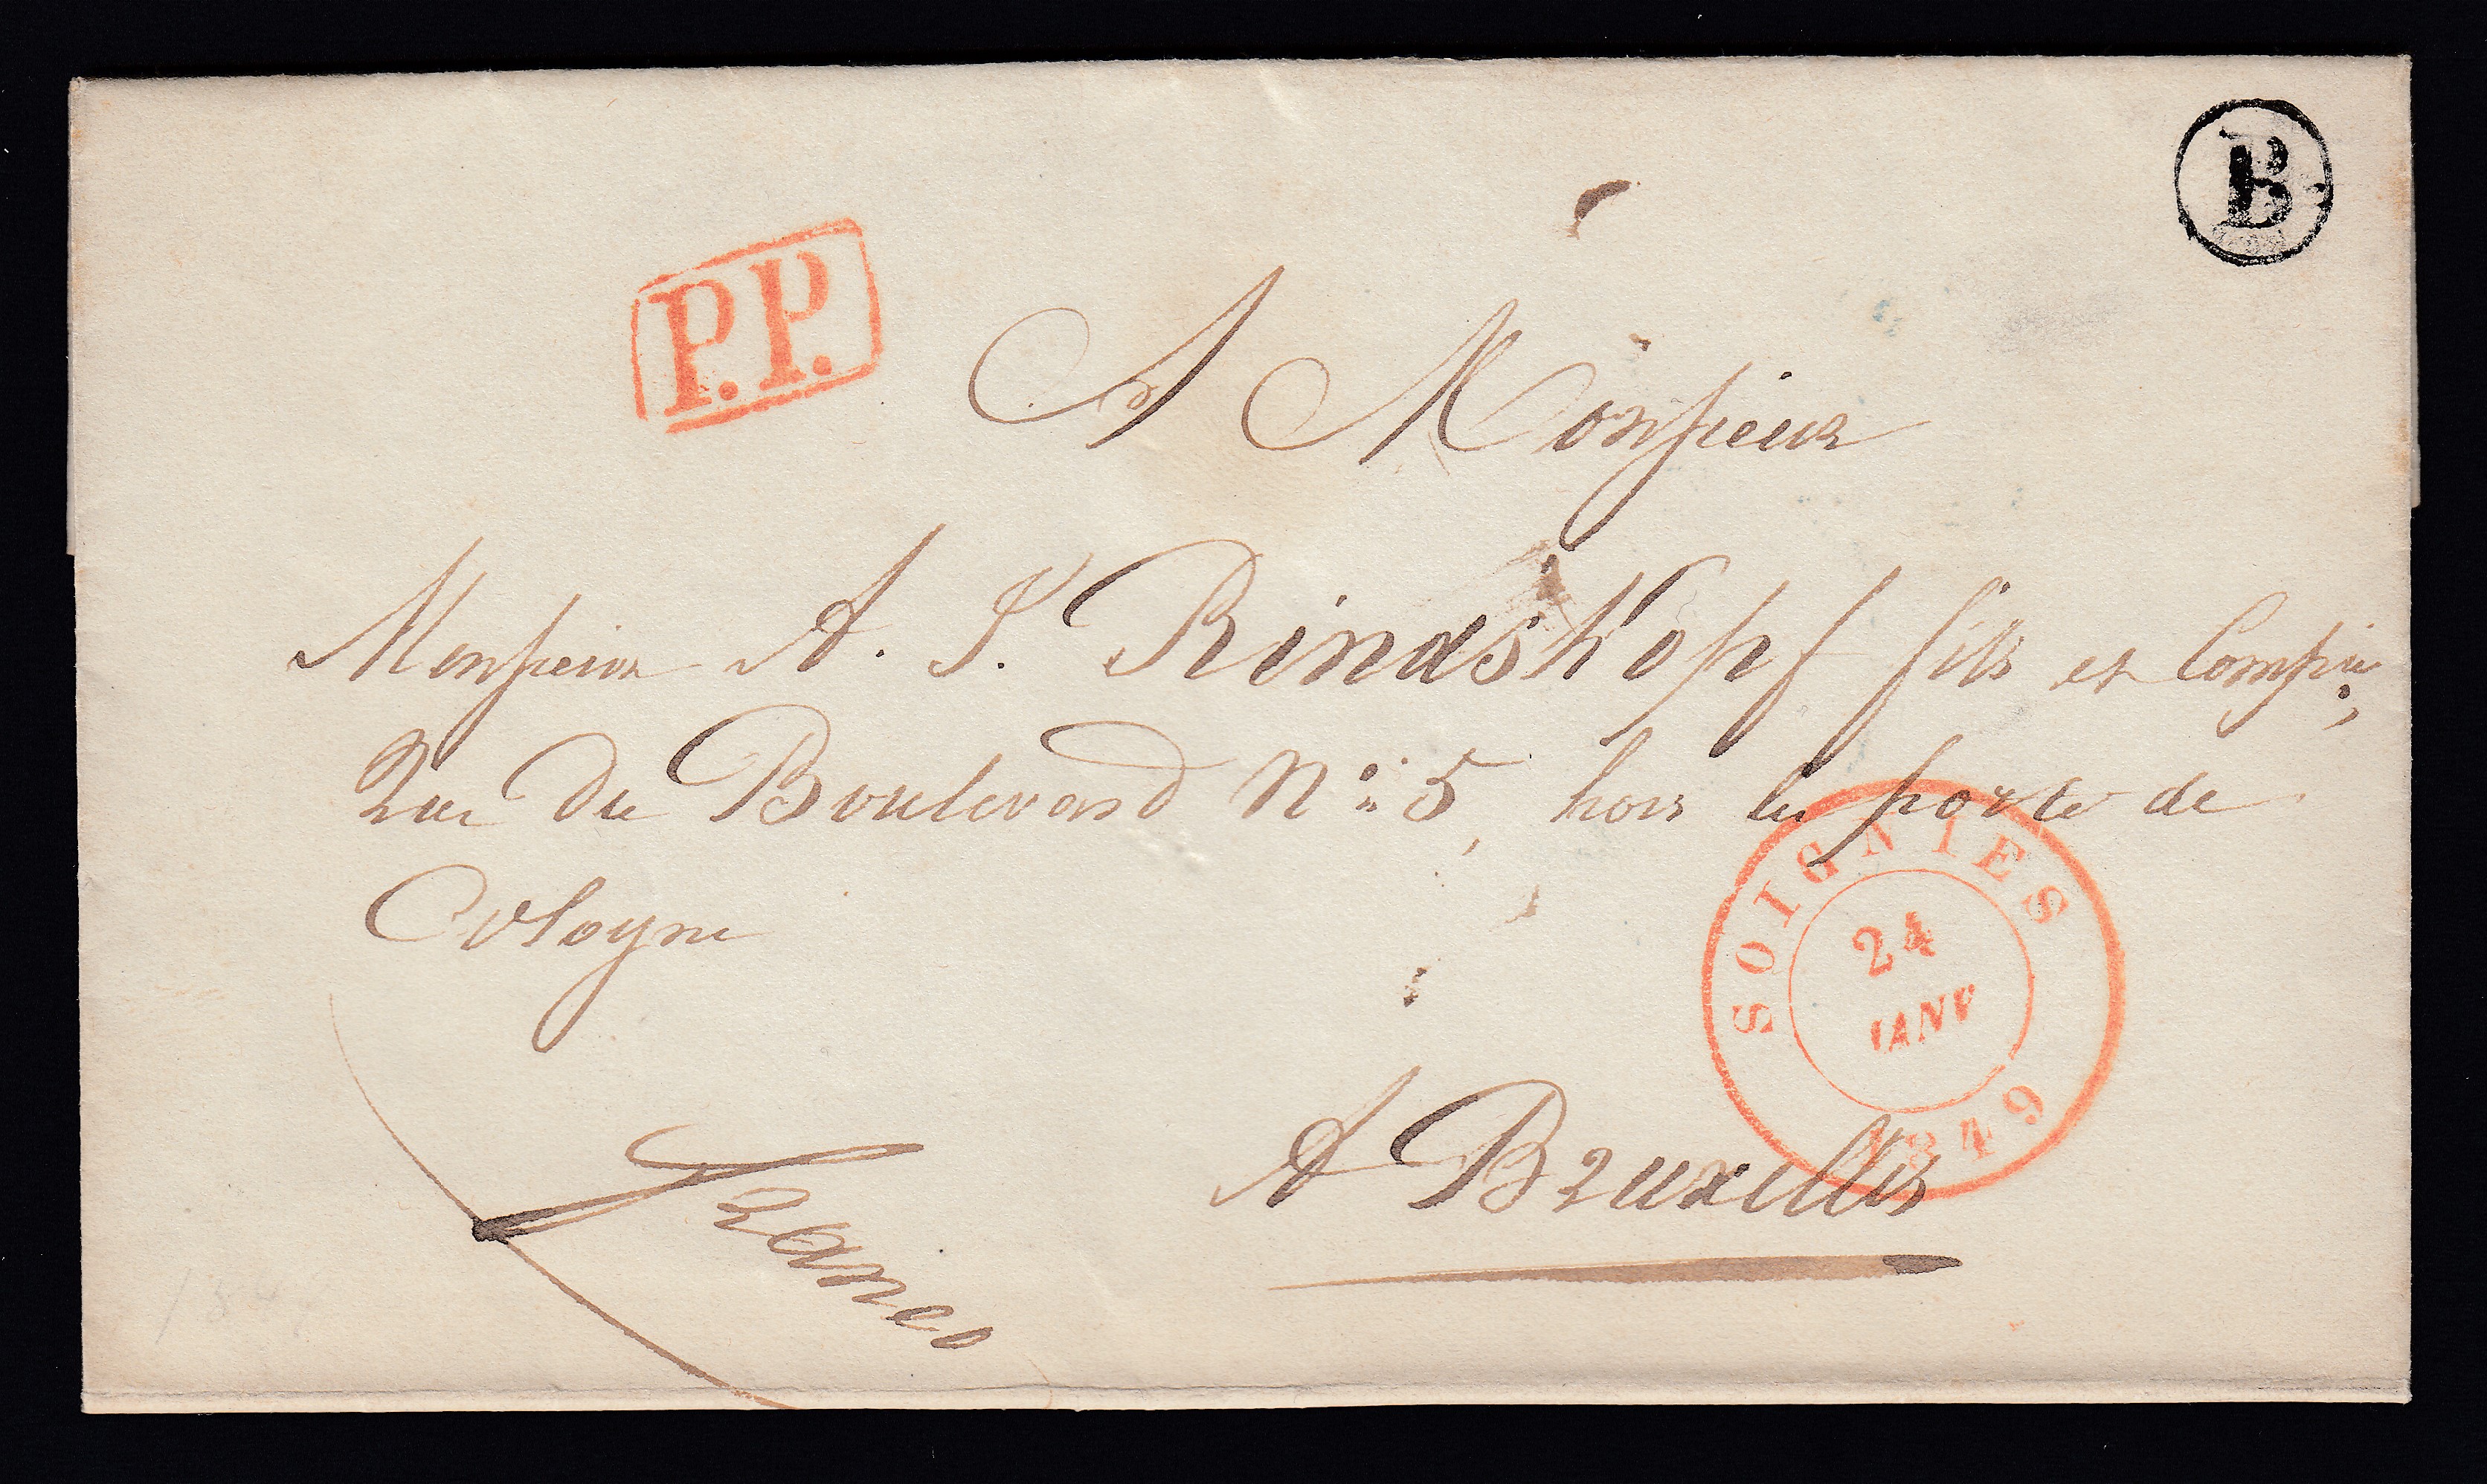 B
P.P.
A Monsieur
Monsieur A. J. Rindskopf fils et Compie,
Rue du Boulevard No 5, hors la porte de
Cologne
SOIGNIES
24
JANV
1849
A Bruxelles
franco